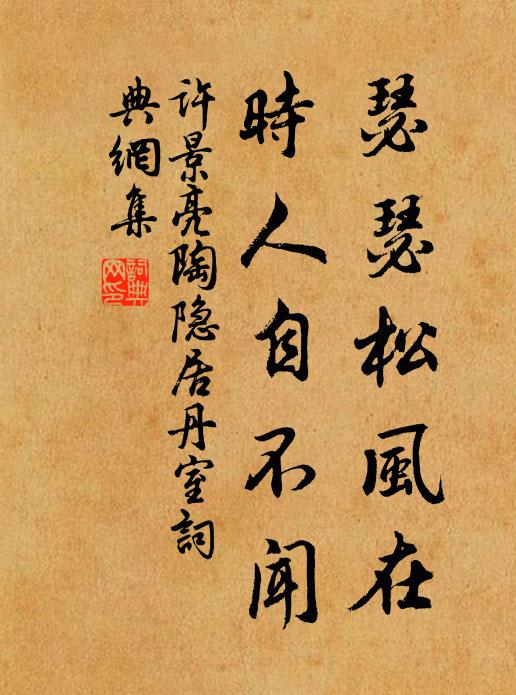 瑟瑟松風在
時人自不聞
許景亮陶隐居丹室詞
典網集
詞典網印